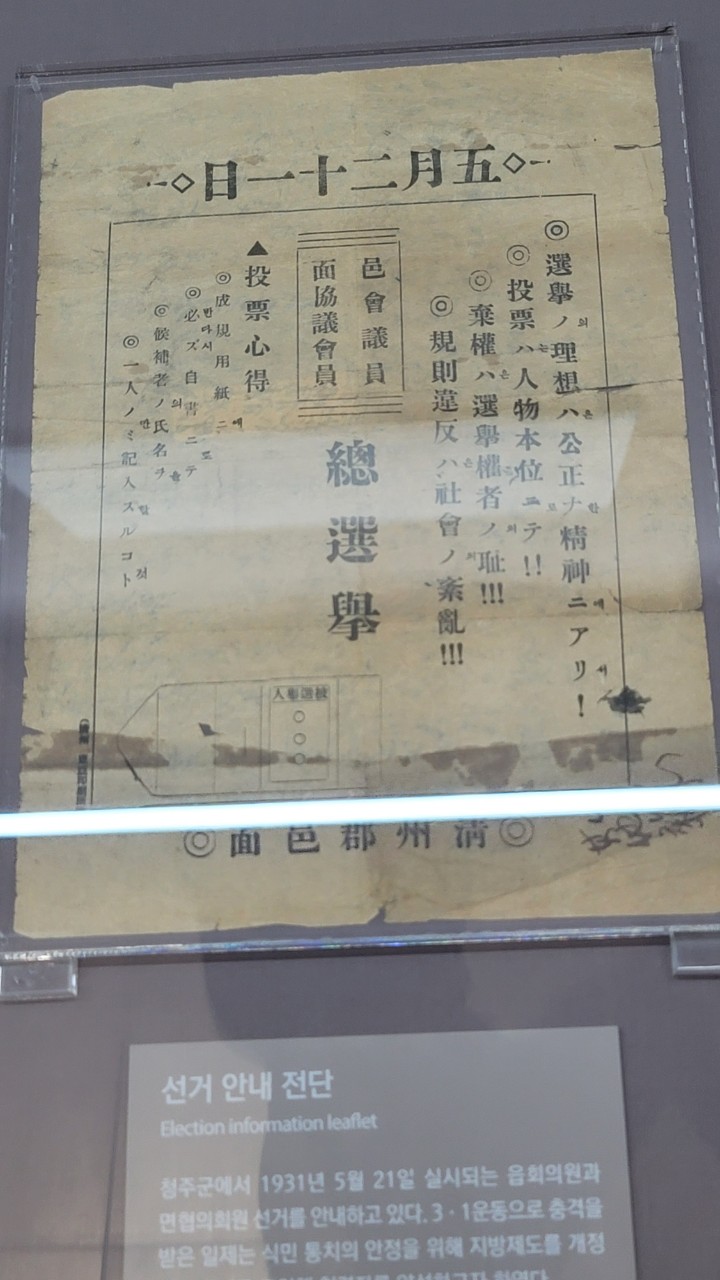 五月二十一日
◎選擧ノ理想ハ公正ナ精神ニアリ!
의 은 한 에
◎投票ハ人物本位ニテ!!
는 로
◎棄權ハ選擧權者ノ耻!!!
은 의
◎規則違反ハ社會ノ紊亂!!!
은 의
邑會議員
面協議會員
總選擧
▲投票心得
◎成規用紙ニ
에
◎必ズ自書ニテ
반다시 로
◎候補者ノ氏名ヲ
의 을
◎一人ノミ記入スルコト
만 할 것
被選擧人
○○○
◎淸州郡邑面◎
선거 안내 전단
Election information leaflet
청주군에서 1931년 5월 21일 실시되는 읍회의원과
면협의회원 선거를 안내하고 있다. 3·1운동으로 충격을
받은 일제는 식민 통치의 안정을 위해 지방제도를 개정